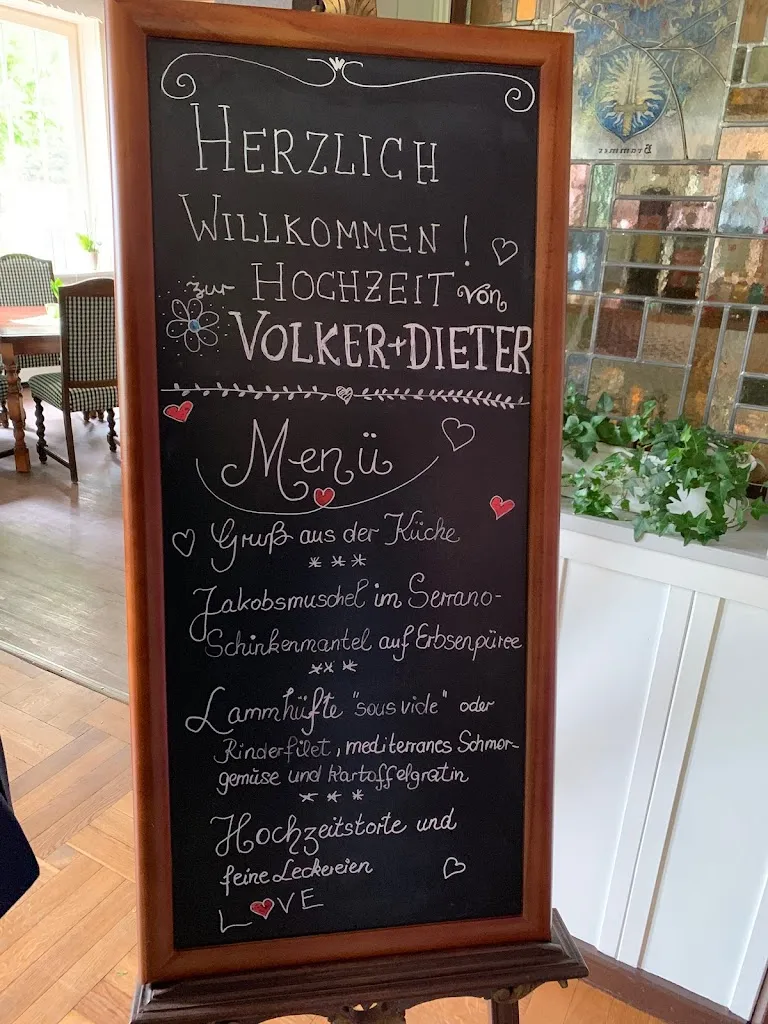 HERZLICH
WILLKOMMEN!
zur HOCHZEIT von
VOLKER+DIETER
Menü
Gruß aus der Küche
***
Jakobsmuschel im Serrano-
Schinkenmantel auf Erbsenpüree
***
Lammhüfte "sous vide" oder
Rinderfilet, mediterranes Schmor-
gemüse und Kartoffelgratin
***
Hochzeitstorte und
feine Leckereien
LOVE